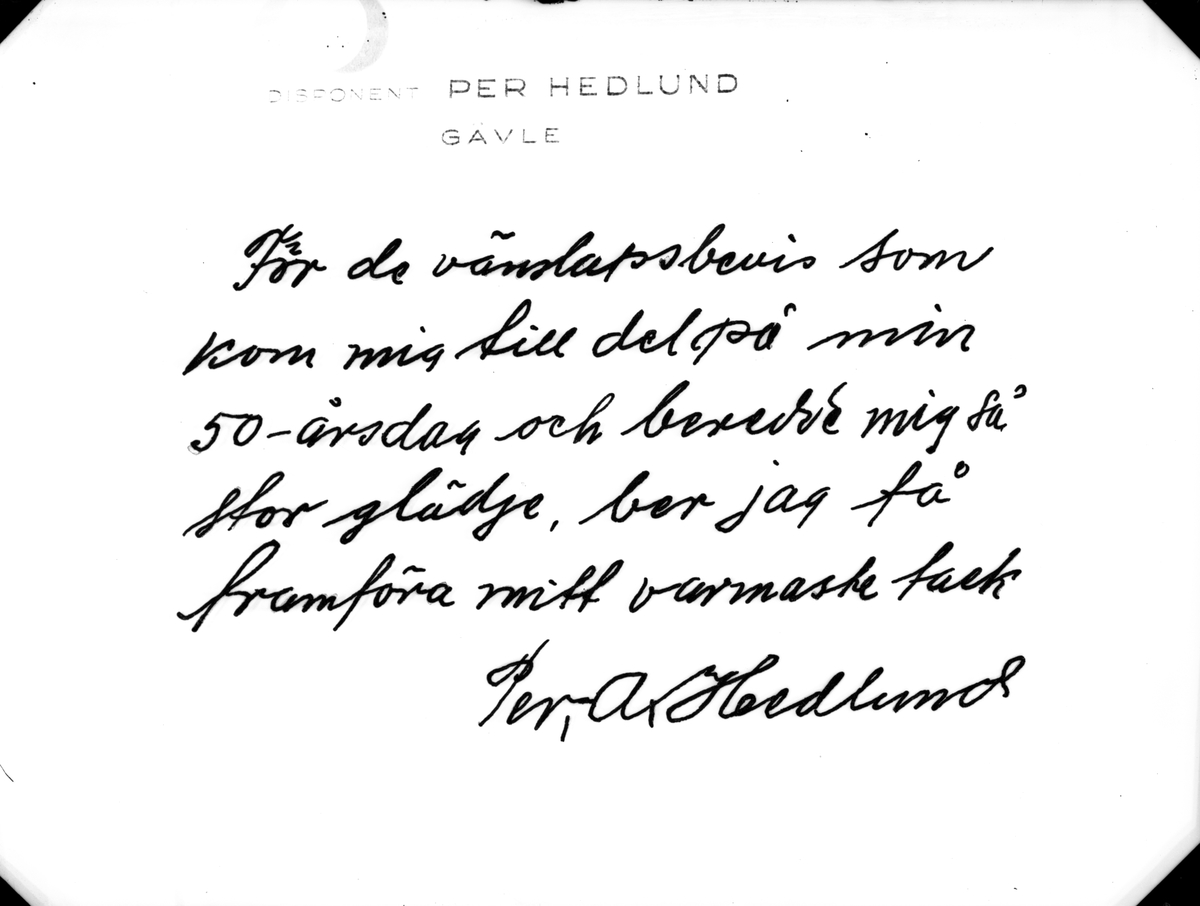 DISPONENT PER HEDLUND
GÄVLE
För de vänskapsbevis som
kom mig till del på min
50-årsdag och beredde mig så
stor glädje, ber jag få
framföra mitt varmaste tack
Per A. Hedlund